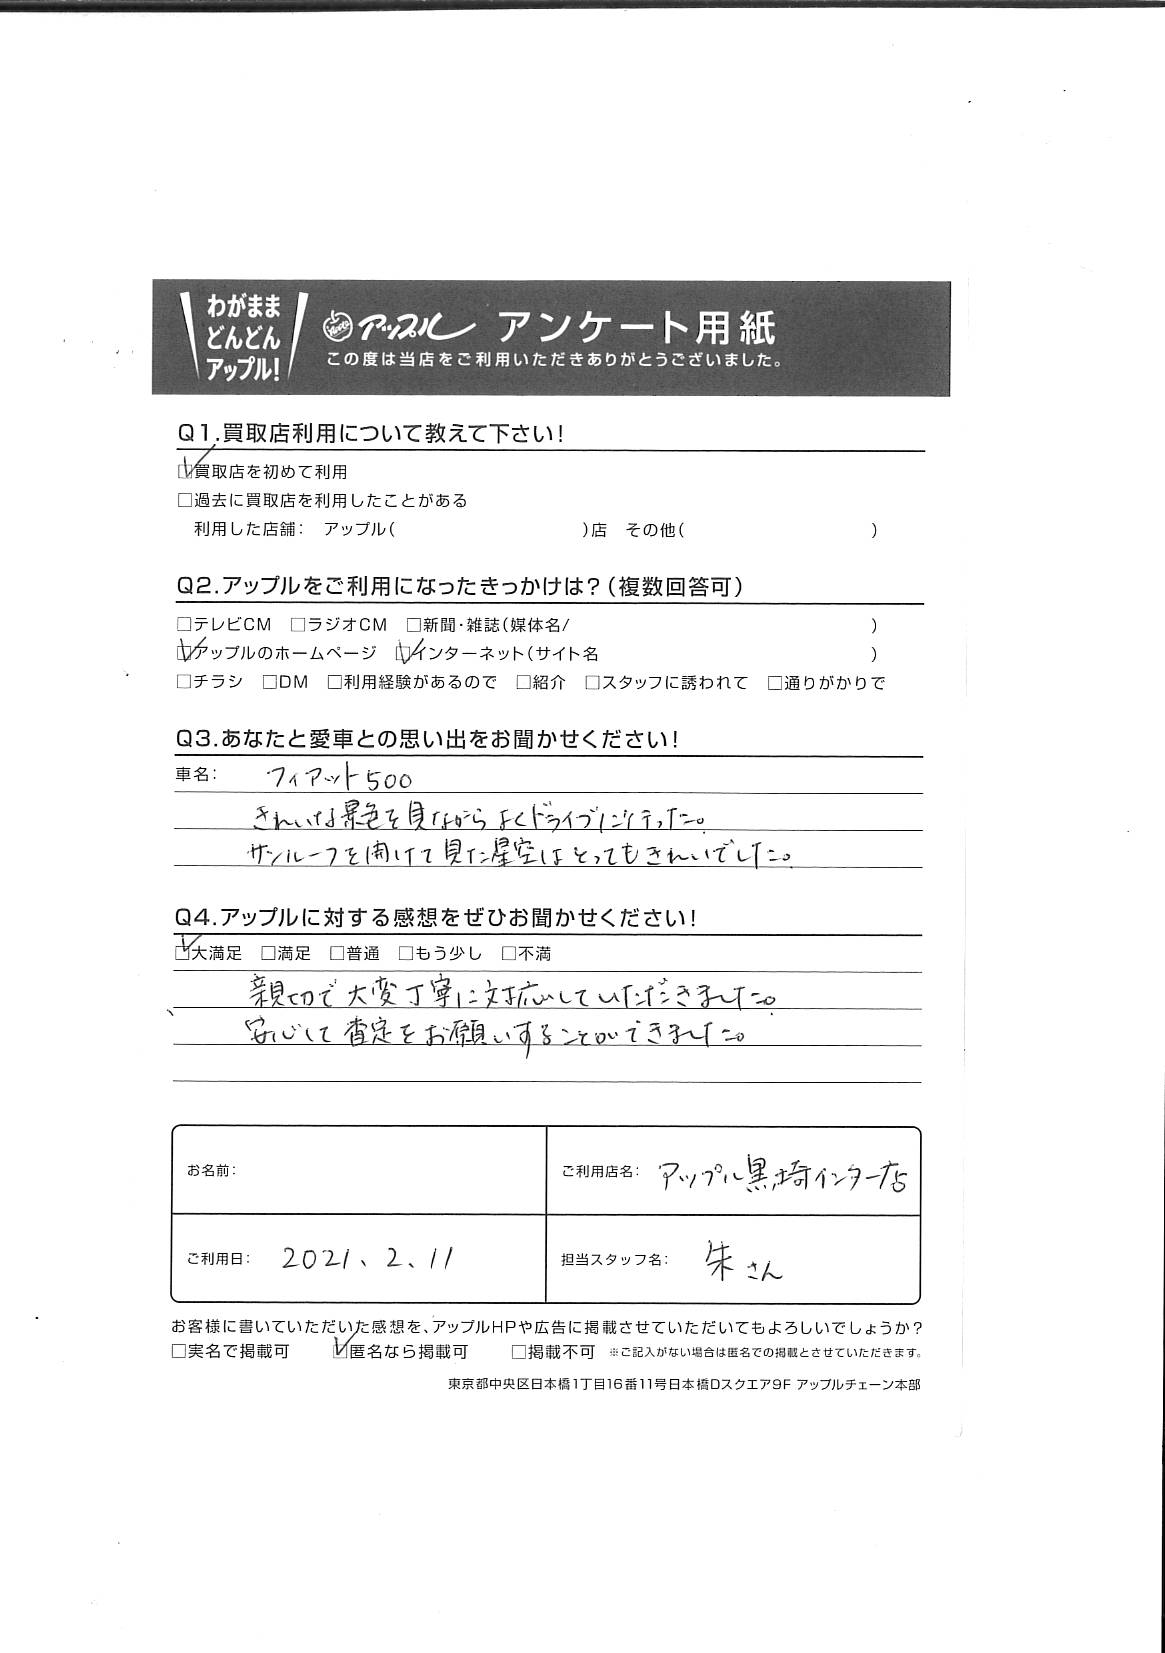 わがまま
どんどん
アップル!
Apple アップル アンケート用紙
この度は当店をご利用いただきありがとうございました。
Q1.買取店利用について教えて下さい!
☑買取店を初めて利用
□過去に買取店を利用したことがある
利用した店舗: アップル( )店 その他( )
Q2.アップルをご利用になったきっかけは?(複数回答可)
□テレビCM □ラジオCM □新聞・雑誌(媒体名/ )
☑アップルのホームページ ☑インターネット(サイト名 )
□チラシ □DM □利用経験があるので □紹介 □スタッフに誘われて □通りがかりで
Q3.あなたと愛車との思い出をお聞かせください!
車名: フィアット500
きれいな景色を見ながらよくドライブに行った。
サンルーフを開けて見た星空はとってもきれいでした。
Q4.アップルに対する感想をぜひお聞かせください!
☑大満足 □満足 □普通 □もう少し □不満
親切で大変丁寧に対応していただきました。
安心して査定をお願いすることができました。
お名前:
ご利用店名: アップル黒埼インター店
ご利用日: 2021、2、11
担当スタッフ名: 朱さん
お客様に書いていただいた感想を、アップルHPや広告に掲載させていただいてもよろしいでしょうか?
□実名で掲載可 ☑匿名なら掲載可 □掲載不可 ※ご記入がない場合は匿名での掲載とさせていただきます。
東京都中央区日本橋1丁目16番11号日本橋Dスクエア9F アップルチェーン本部